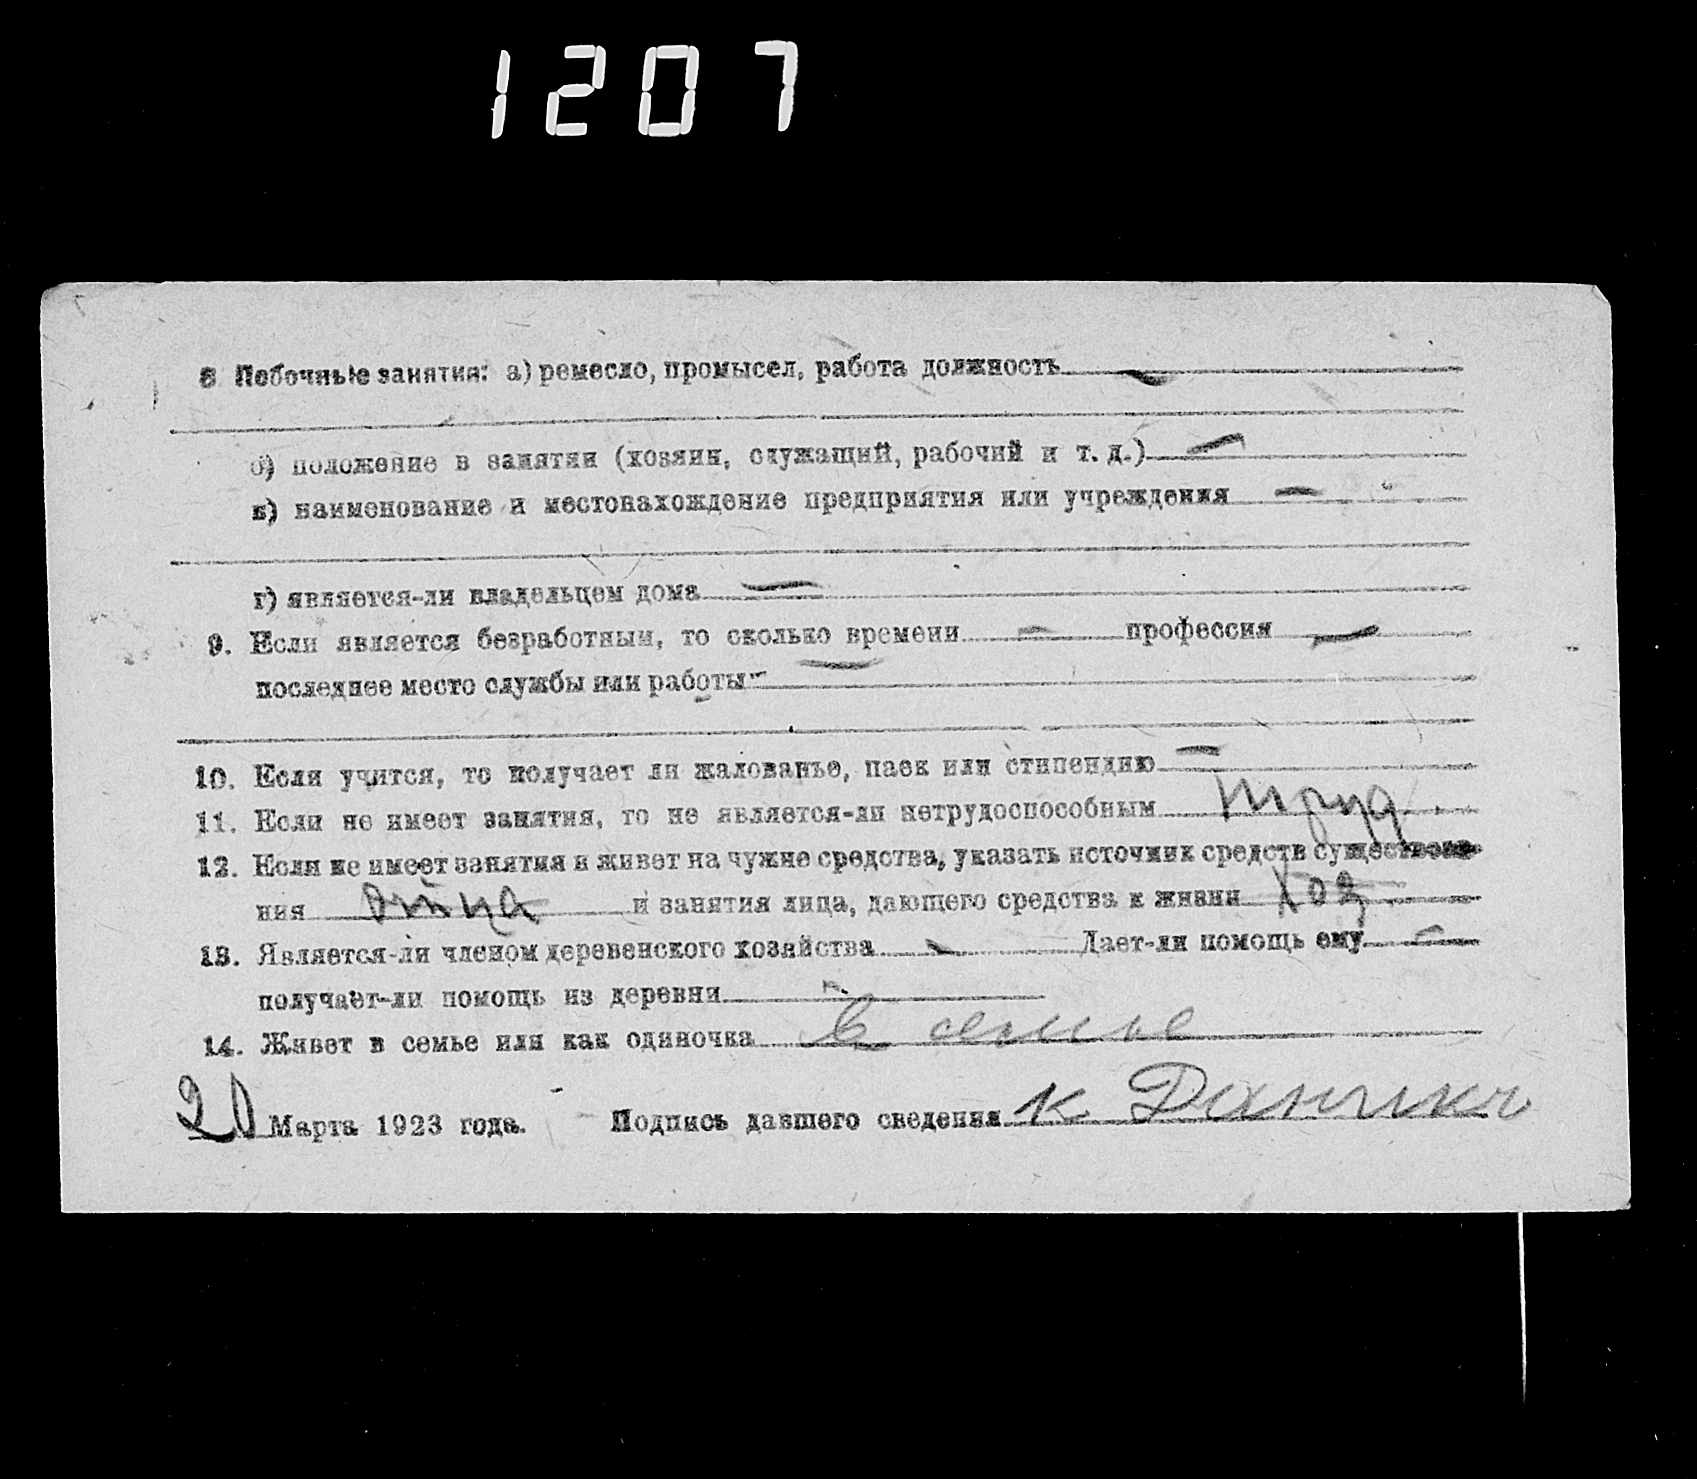 1207
8 Побочные занятия: а) ремесло, промысел, работа должность
б) положение в занятии (хозяин, служащий, рабочий и т. д.)
в) наименование и местонахождение предприятия или учреждения
г) является-ли владельцем дома
9. Если является безработным, то сколько времени профессия
последнее место службы или работы
10. Если учится, то получает ли жалованье, паек или стипендию
11. Если не имеет занятия, то не является-ли нетрудоспособным труд
12. Если не имеет занятия и живет на чужие средства, указать источник средств существова-
ния отца и занятия лица, дающего средства к жизни хоз
13. Является-ли членом деревенского хозяйства Дает-ли помощь ему
получает-ли помощь из деревни
14. Живет в семье или как одиночка в семье
20 Марта 1923 года. Подпись давшего сведения К